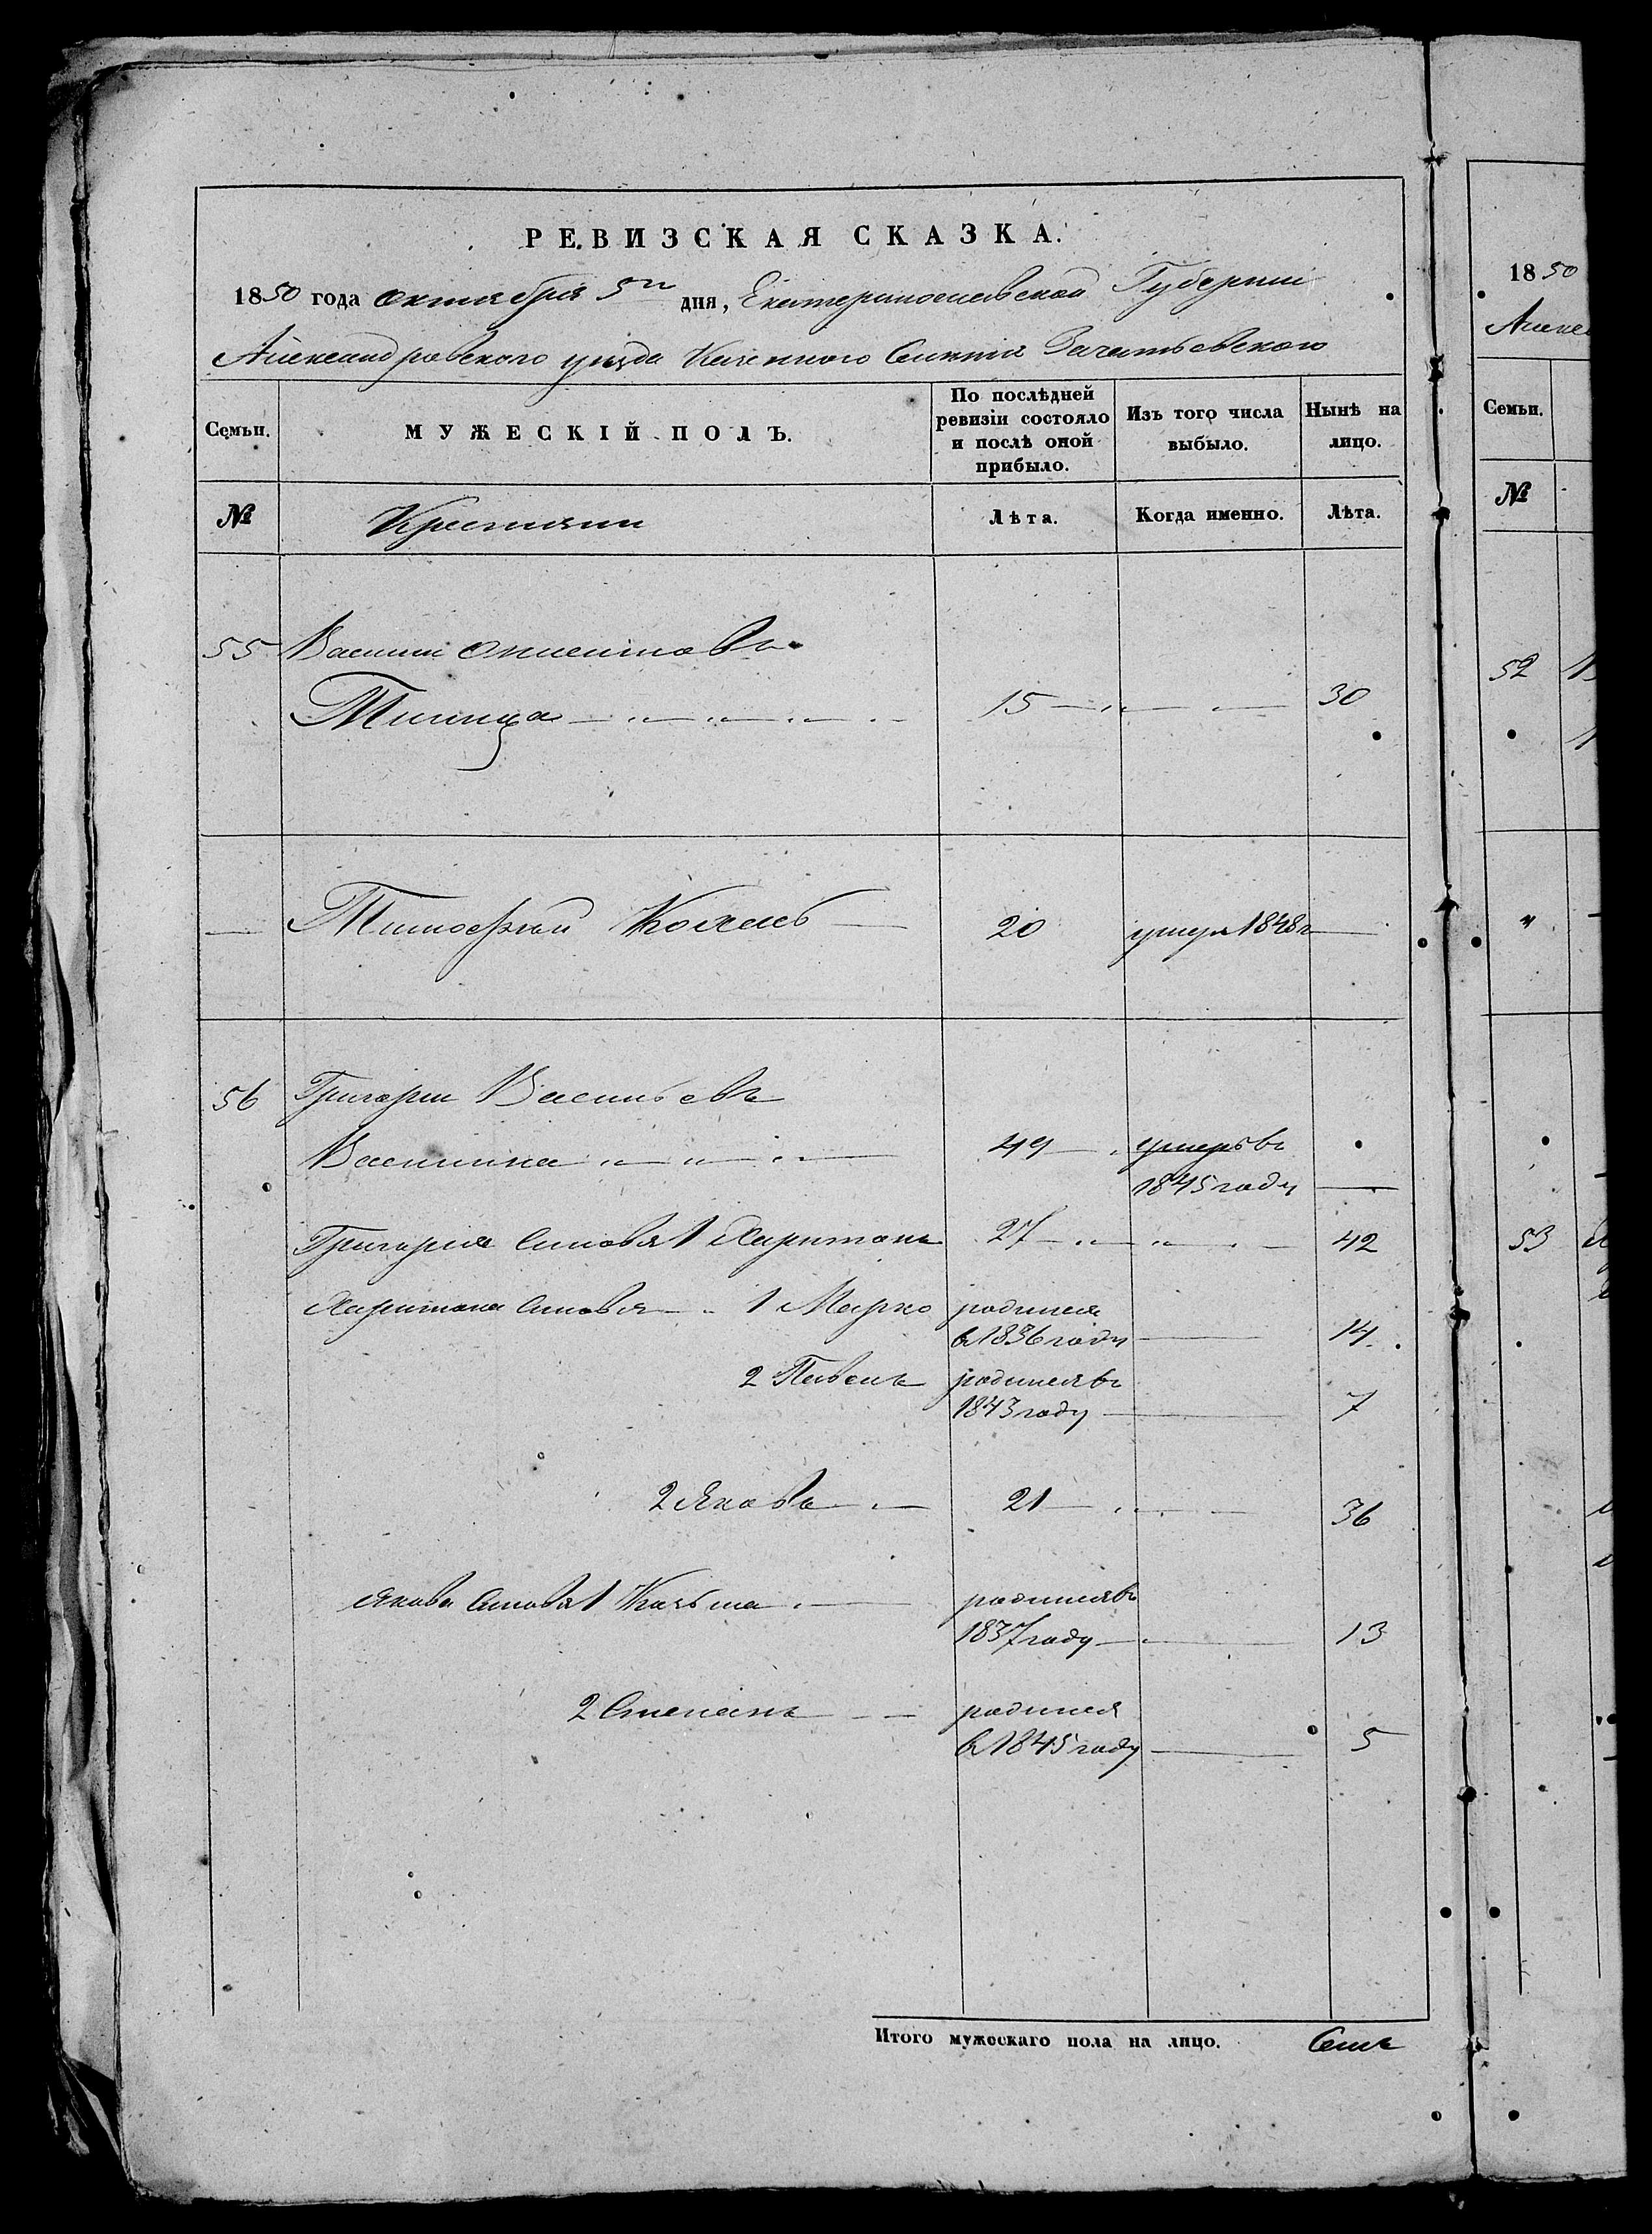 РЕВИЗСКАЯ СКАЗКА.
1850 года октября 5го дня, Екатеринославской Губернии
Александровского уезда Казенного Селения Зачатьевского
Семьи. МУЖЕСКІЙ ПОЛЪ. По послѣдней ревизіи состояло и послѣ оной прибыло. Изъ того числа выбыло. Нынѣ на лицо.
№ Крестяни Лѣта. Когда именно. Лѣта.
55 Василий
15 30
Тимофей 20 умер 1848г
56 Григорий Васильевъ
49 умеръ въ
1845 году
Григория Сыновя 1 Харитонъ 27 42
Харитона Сыновя 1 Марко родился
в 1836 году 14
2 Павелъ родился въ
1843 году 7
2 Яковъ 21 36
Якова Сыновя 1 Козьма родился въ
1837 году 13
2 Степанъ родился
в 1845 году 5
Итого мужескаго пола на лицо. Семь
1850
Семьи.
№
52
53